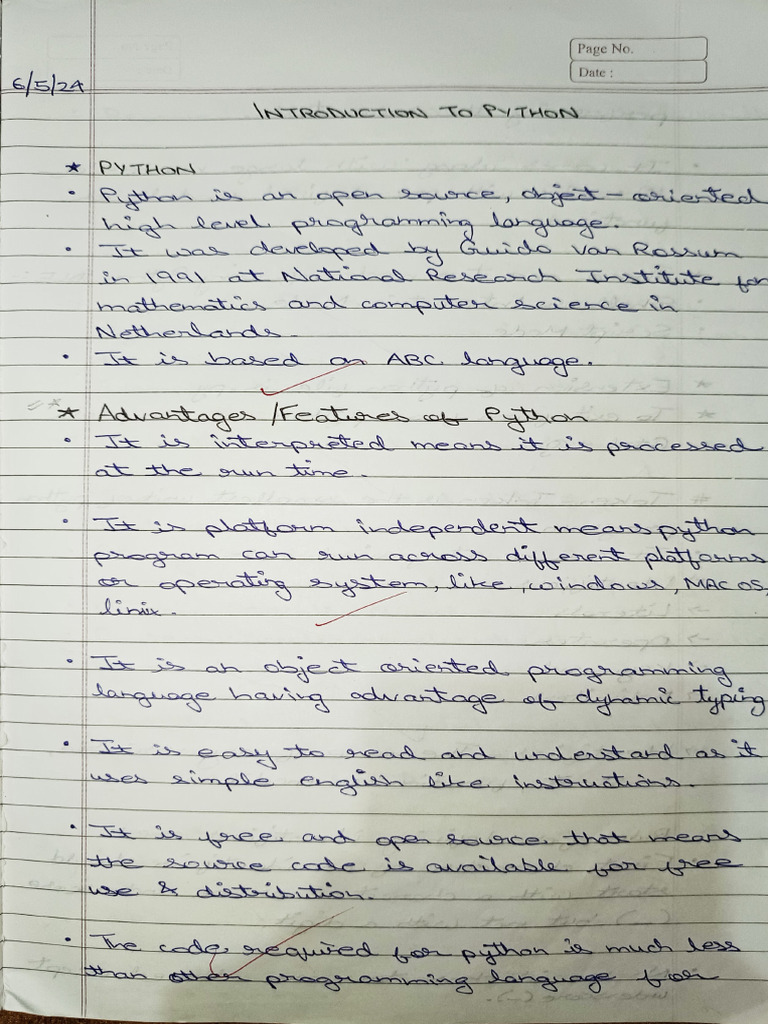 Page No.
Date :
6/5/24
INTRODUCTION TO PYTHON
★ PYTHON
• Python is an open source, object-oriented
high level programming language.
• It was developed by Guido Van Rossum
in 1991 at National Research Institute for
mathematics and computer science in
Netherlands.
• It is based on ABC language.
★ Advantages /Features of Python
• It is interpreted means it is processed
at the run time.
• It is platform independent means python
program can run across different platforms
or operating system, like, windows, MAC OS,
linix.
• It is an object oriented programming
language having advantage of dynamic typing
• It is easy to read and understand as it
uses simple english like instructions.
• It is free and open source that means
the source code is available for free
use & distribution.
• The code required for python is much less
than other programming language for